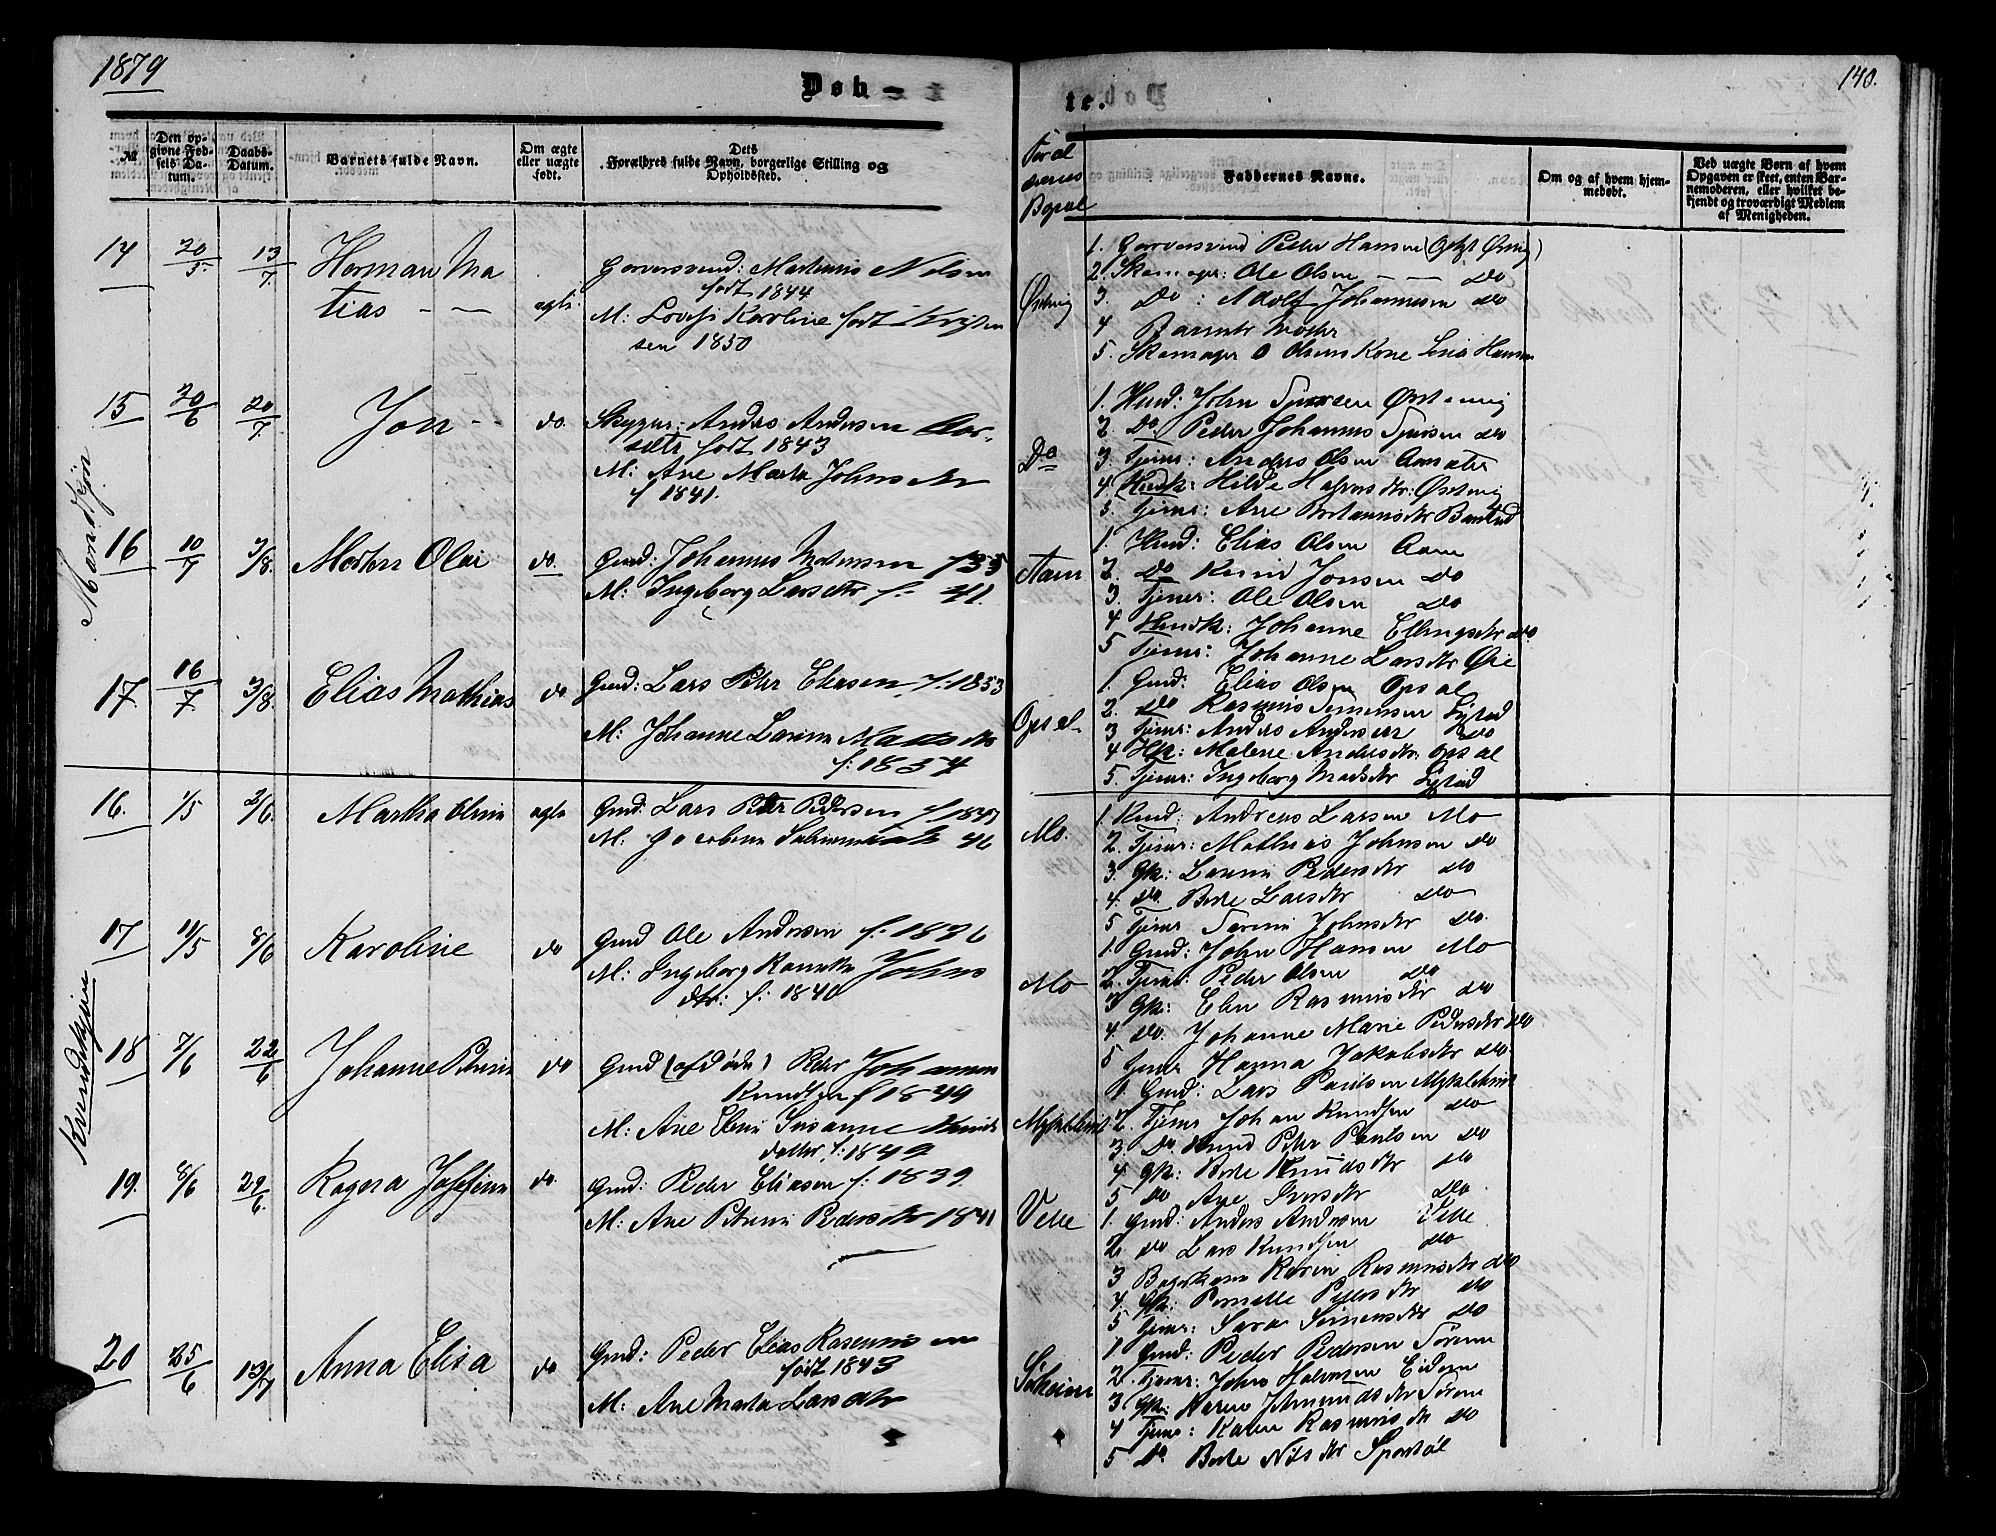 1879
140.
Døb-
te.
№
Den opgivne Fødsels Datum.
Daabs-Datum.
Barnets fulde Navn.
Om ægte eller uægte født.
Dets Forældres fulde Navn, borgerlige Stilling og Opholdssted.
Foræl
drenes
Bopæl
Faddernes Navne.
Om og af hvem hjemmedøbt.
Ved uægte Børn af hvem Opgaven er skeet, enten Barnemoderen, eller hvilket bekjendt og troværdigt Medlem af Menigheden.
14 20/5. 13/7. Herman Ma
tias - - ægte
Garversvend: Martinus Nilsen
født 1844
M: Lovise Karoline født Kristen
sen 1850
Ørstvig
1. Garversvend Peder Hansen
2. Skomager: Ole Olsen - - do
3. Do: Adolf Johannesen do
4 Barnets Moder
5. Skomager O Olsens Kone Hansen
15 20/6 20/7. Jon - - do.
Skyds: Anders Andersen Aar-
sætr født 1843
M: Ane Marta Johnsdtr
f 1841.
Do
1. Husd: John Sjursen Ørstenvig
2. Do Peder Johannes Sjursen do
3. Tjener: Anders Olsen Aarsætr
4. Husk: Hilde Halvorsdtr: Ørstvig
5. Tjener: Ane
Vartdalssogn
16 10/7 3/8. Morten Olai do.
Gmd: Johannes Mortensen f 35
M: Ingeborg Larsdtr f: 41.
Aam
1. Husd: Elias Olsen Aam
2. Do Knud Jonsen do
3. Tjener: Ole Olsen do
4 Husk: Johanne Ellingsdtr do.
5 Tjener: Johanne Larsdtr Øie
17. 16/7. 3/8. Elias Mathias do
Gmd: Lars Peter Eliasen f: 1853
M: Johanne Larine Madsdtr
f: 1854
Opsal
1. Gmd: Elias Olsen Opsal
2. do Rasmus
3 Tjener: Anders Andersen do
4 Hk: Malene Andersdtr: Opsal
5. Tjener: Ingeborg Madsdtr
16. 1/5 2/6. Martha Oline ægte
Gmd: Lars Peter Pedersen f 1847
M: Jacobine 46
Mo.
1. Kmd: Andreas Larsen Mo
2. Tjener: Mathias Johnsen do
3. Gk: Larine Pedersdtr do
4. do Berte Larsdtr do
5 Tjener Serine Johnsdtr do.
17 11/5 8/6 Karoline do
Gmd Ole Andersen f: 1836
M: Ingeborg Johns
dtr: f: 1840
Mo
1. Gmd: John Hansen Mo
2. Tjener: Peder Olsen do
3 Gk: Elen Rasmusdtr do
4. do. Johanne Marie Pedersdtr do
5 Tjener Hanna Jakobsdtr do.
18 7/6 22/6 Johanne Petrine do
Gmd (afdøde) Peder Johannes
Knudsen f 1849
M: Ane Elene Susanne Knuds
datter f: 1849
Myklebust
1. Gmd: Lars Paulsen Myklebust
2. Tjener Johan Knudsen do
3 Do Knud Peter Paulsen do
4 Gk: Berte Knudsdtr do
5 do Ane Iversdtr do
19. 8/6 29/6. Ragna Josefine do.
Gmd: Peder Eliasen f: 1839
M: Ane Petrine Pedersdtr 1841
Velle
1. Gmd: Anders Andersen Velle
2. do Lars Knudsen do
3 Karen Rasmusdtr do
4. Gk: Pernelle Pedersdtr do
5 Tjener: Sara Sørensdtr do
20 25/6 13/7 Anna Elisa do
Gmd: Peder Elias Rasmussen
født 1843
M: Ane Marta Larsdtr
1 Gmd: Peder Pedersen
2. Tjener: John Halvorsen
3 Gk: Karen
4 Tjener: Karen Rasmusdtr do
5 Do Berte Nilsdtr